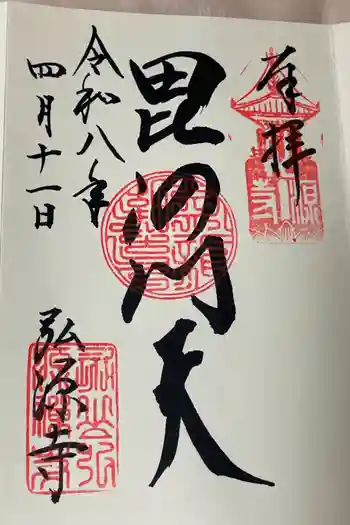 奉拝
毘沙門天
令和八年
四月十一日
弘源寺